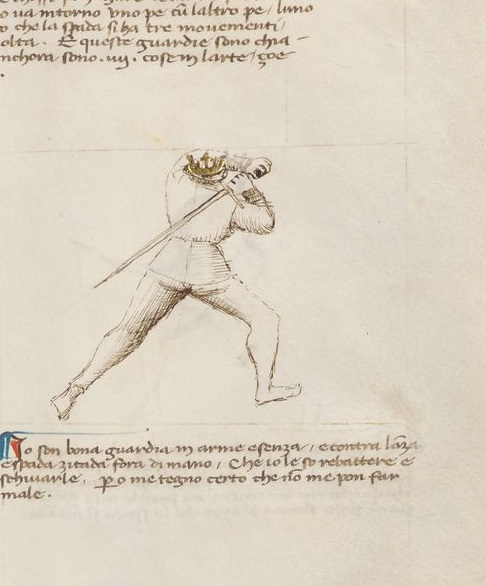 o va intorno uno pe cū laltro pe / luno
o che la spada si ha tre movementi /
olta . E queste guardie sono chia -
nchora sono . iiij . cose in larte / zoe
.
Io son bona guardia in arme e senza / e contra lāza
e spada zitada fora di mano / Che io le so rebattere e
schivarle . p̱ o me tegno certo che nō me pon far
male .